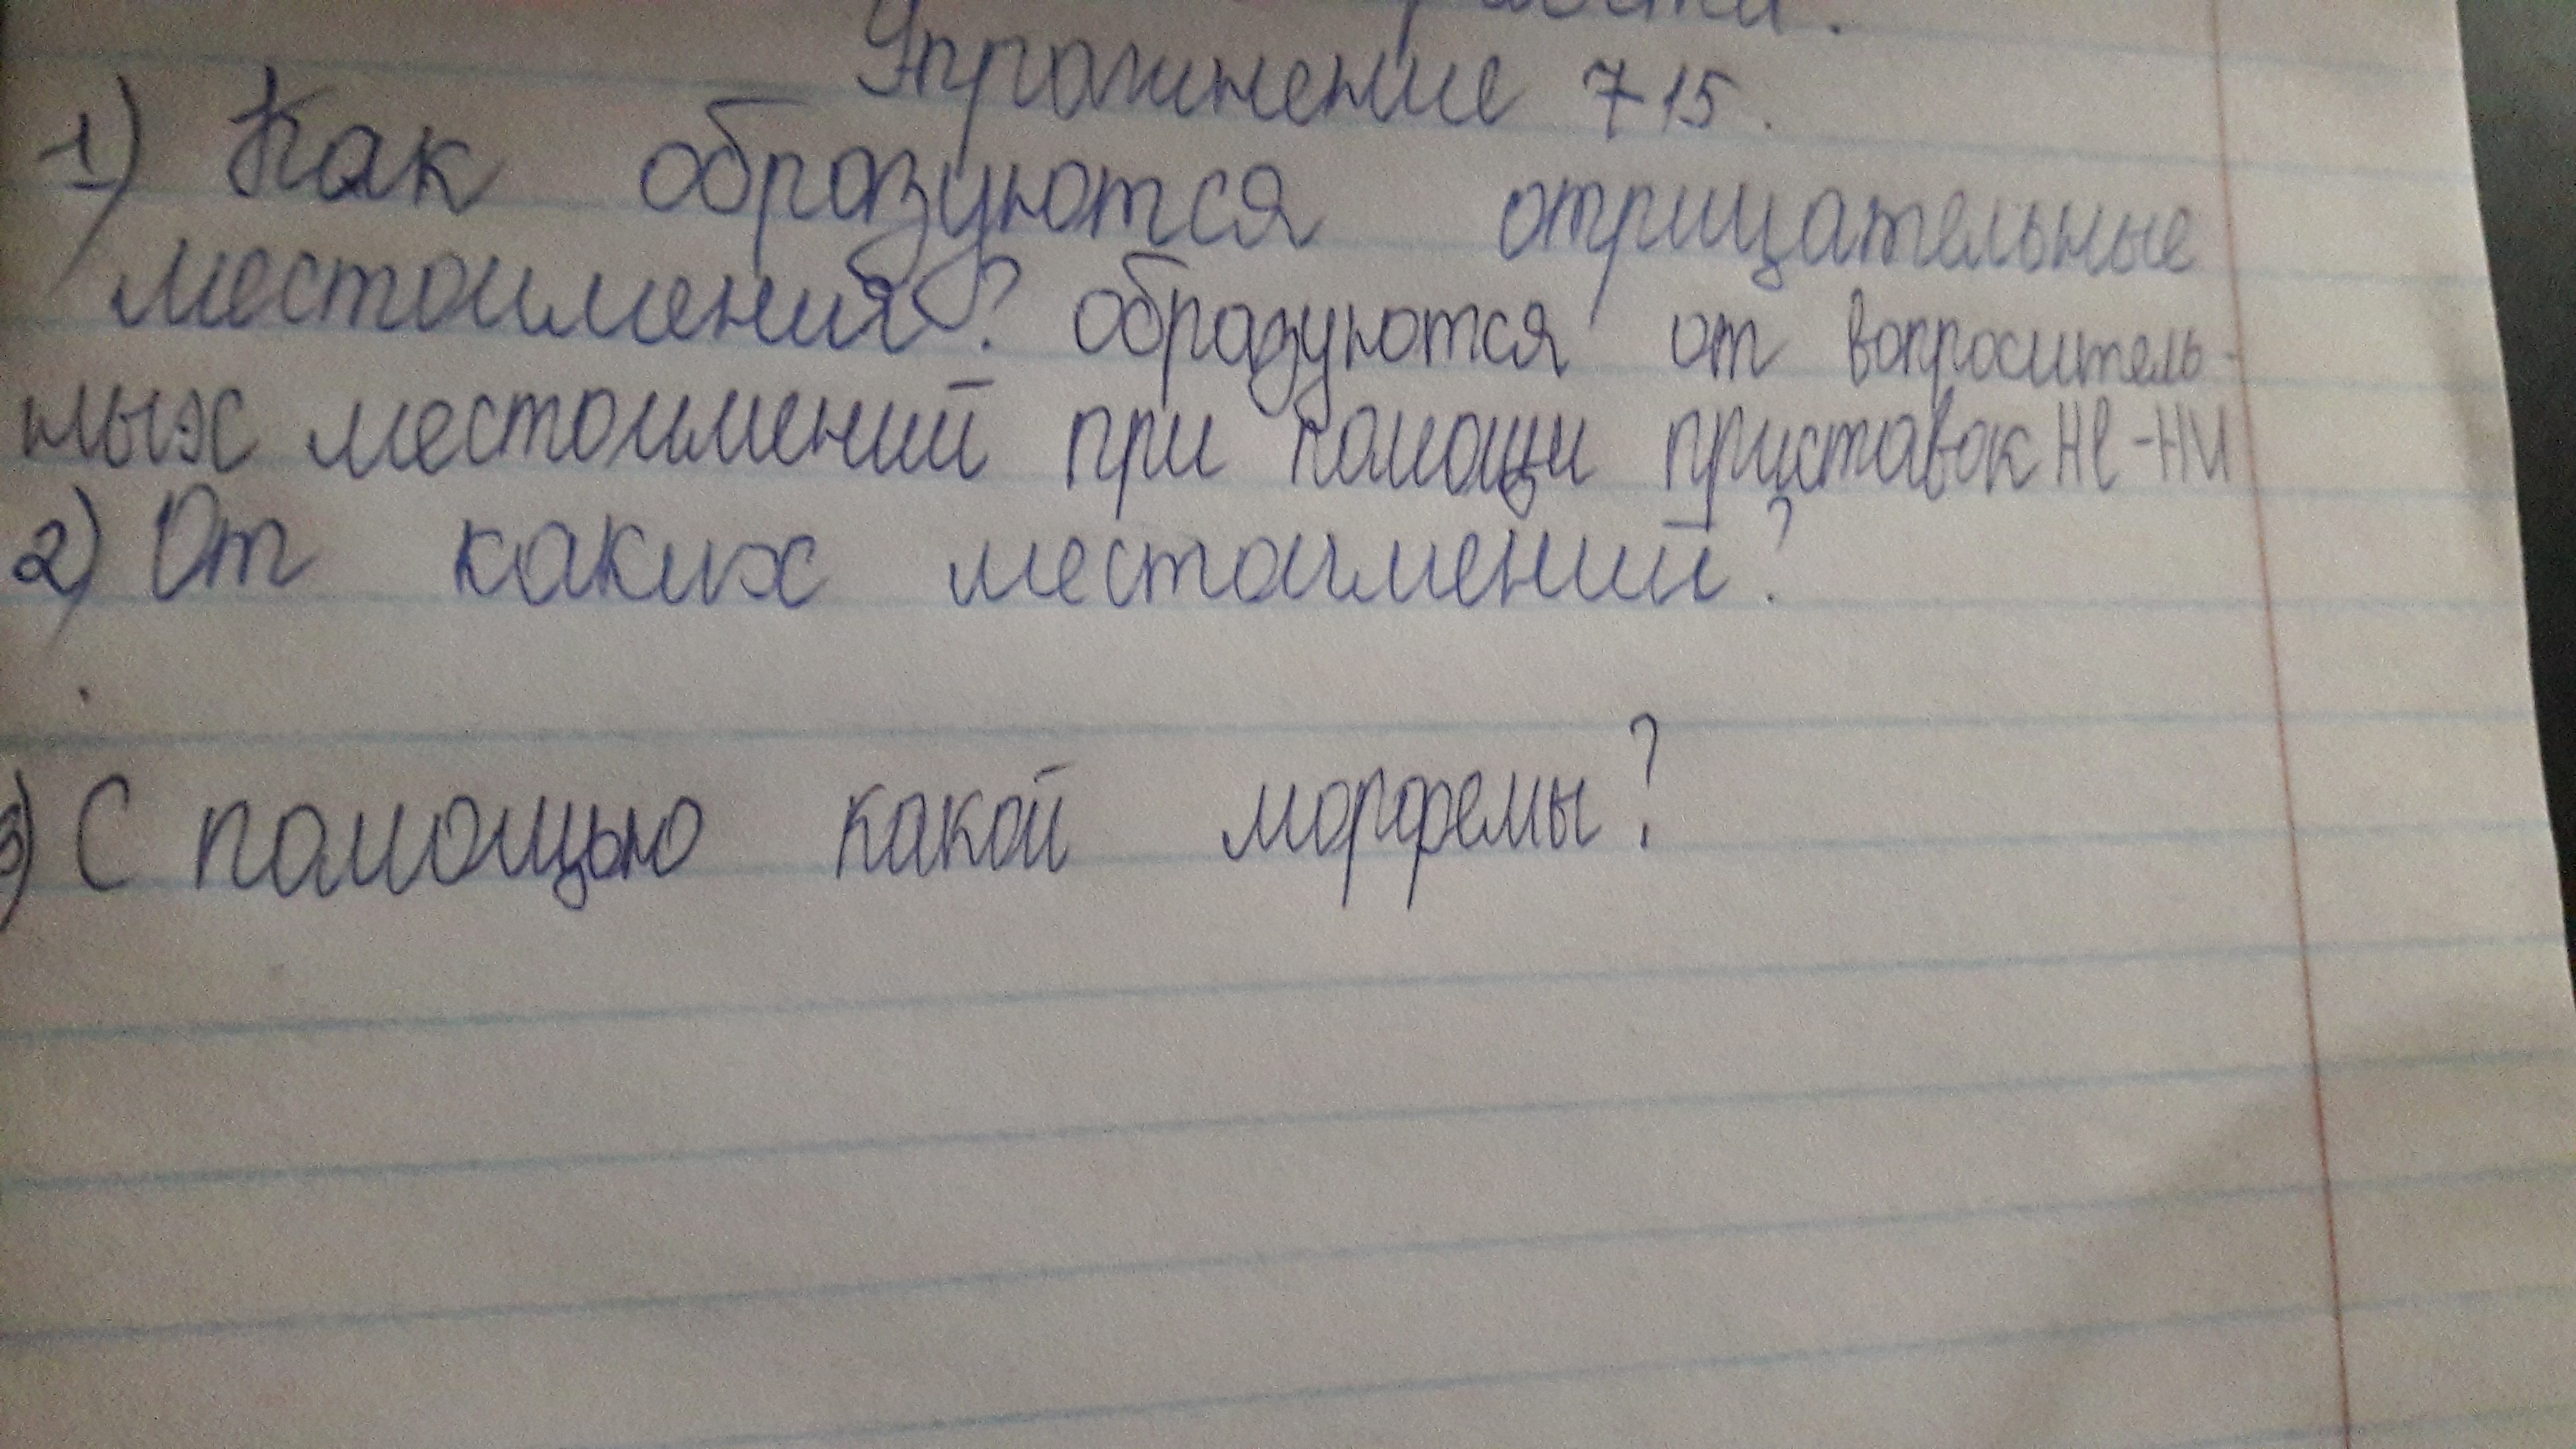 Упражнение 715.
1) Как образуются отрицательные
местоимения? образуются от вопроситель-
ных местоимений при помощи приставок не-ни
2) От каких местоимений?
3) С помощью какой морфемы?